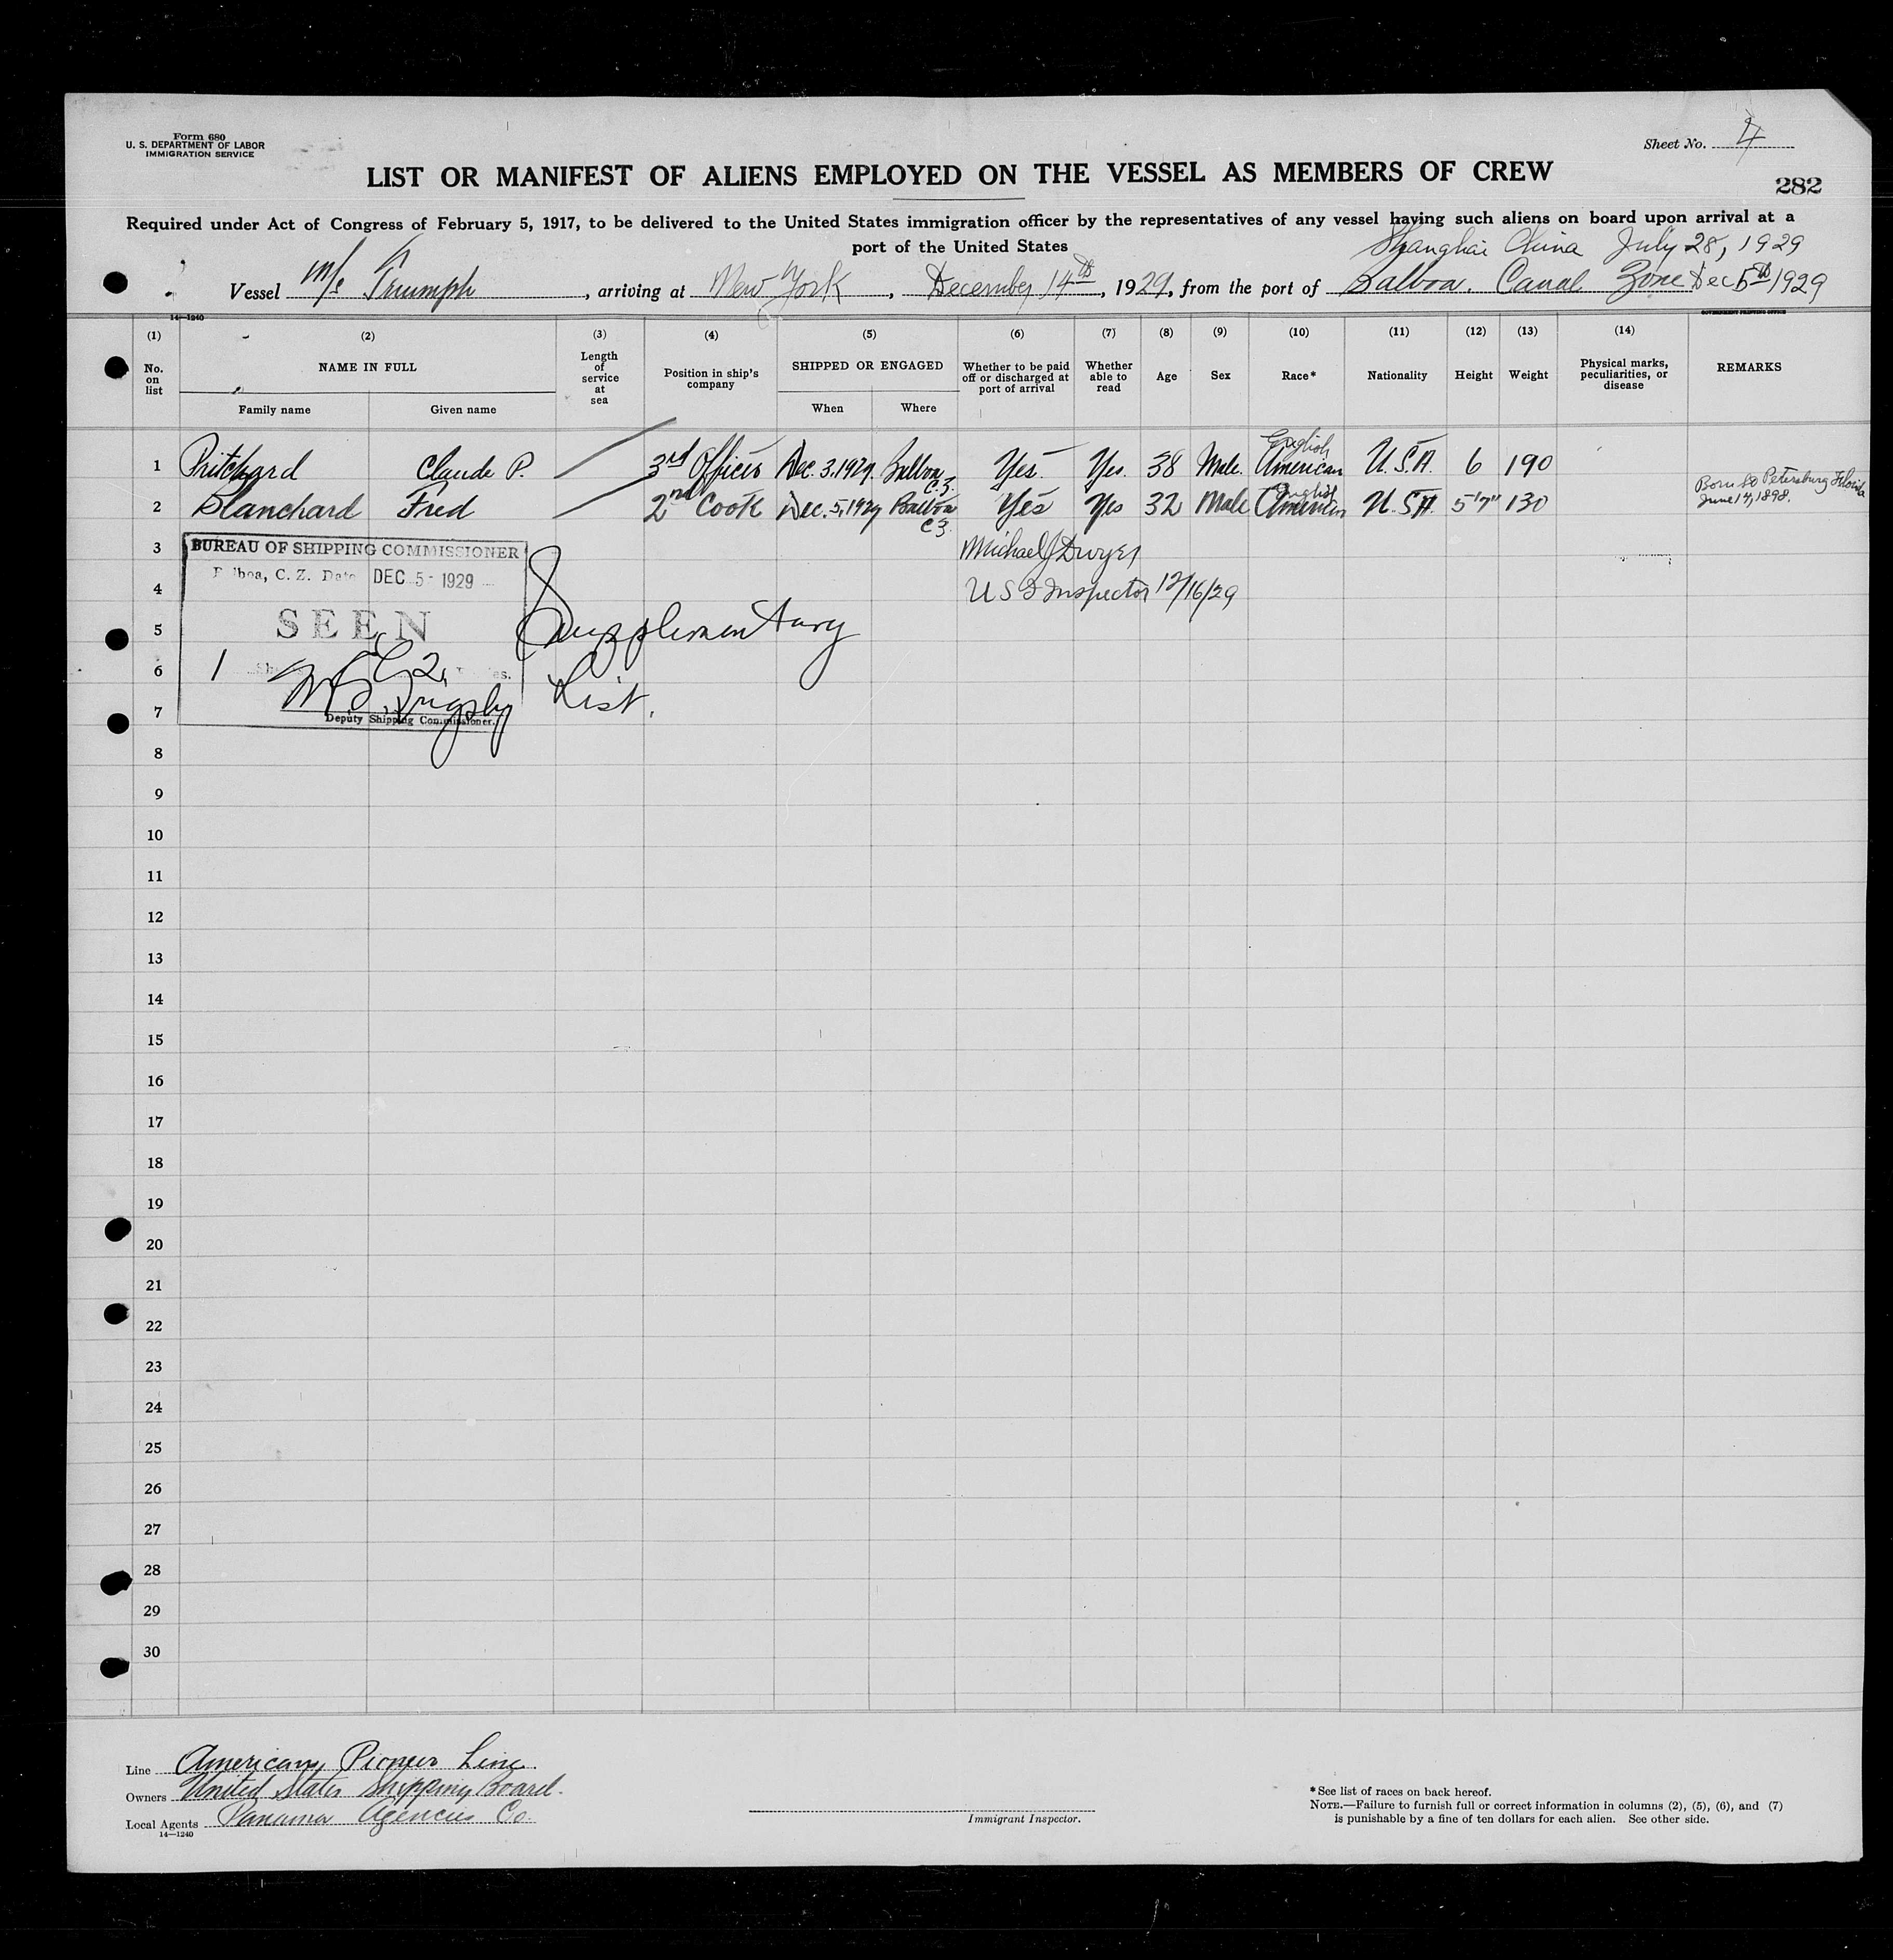 Form 680
U. S. DEPARTMENT OF LABOR
IMMIGRATION SERVICE
Sheet No. 4
LIST OR MANIFEST OF ALIENS EMPLOYED ON THE VESSEL AS MEMBERS OF CREW
282
Required under Act of Congress of February 5, 1917, to be delivered to the United States immigration officer by the representatives of any vessel having such aliens on board upon arrival at a
port of the United States
Shanghai China July 28, 1929
Vessel M/s Triumph, arriving at New York, December 14th, 1929, from the port of Balboa. Canal Zone Dec 5th 1929
14—1240
GOVERNMENT PRINTING OFFICE
(1) (2) (3) (4) (5) (6) (7) (8) (9) (10) (11) (12) (13) (14)
No. on list
NAME IN FULL
Family name Given name
Length of service at sea
Position in ship's company
SHIPPED OR ENGAGED
When Where
Whether to be paid off or discharged at port of arrival
Whether able to read
Age
Sex
Race*
Nationality
Height
Weight
Physical marks, peculiarities, or disease
REMARKS
English
1 Pritchard Claude P. 3rd Officer Dec. 3, 1929. Balboa C.Z. Yes Yes. 38 Male. American U.S.A. 6 190
English
2 Blanchard Fred 2nd Cook Dec. 5, 1929 Balboa CZ. Yes Yes 32 Male American U.S.A. 5'7" 130
Born St Petersburg Florida
June 17, 1898.
3
4
5
6
7
8
9
10
11
12
13
14
15
16
17
18
19
20
21
22
23
24
25
26
27
28
29
30
Michael J Dwyer
U S I Inspector 12/16/29
BUREAU OF SHIPPING COMMISSIONER
Balboa, C. Z. Date DEC 5 - 1929
SEEN
1 2
Deputy Shipping Commissioner.
Supplementary
List.
Line American Pioneer Line.
Owners United States Shipping Board.
Local Agents Panama Agencies Co.
14—1240
Immigrant Inspector.
*See list of races on back hereof.
NOTE.—Failure to furnish full or correct information in columns (2), (5), (6), and (7)
is punishable by a fine of ten dollars for each alien. See other side.